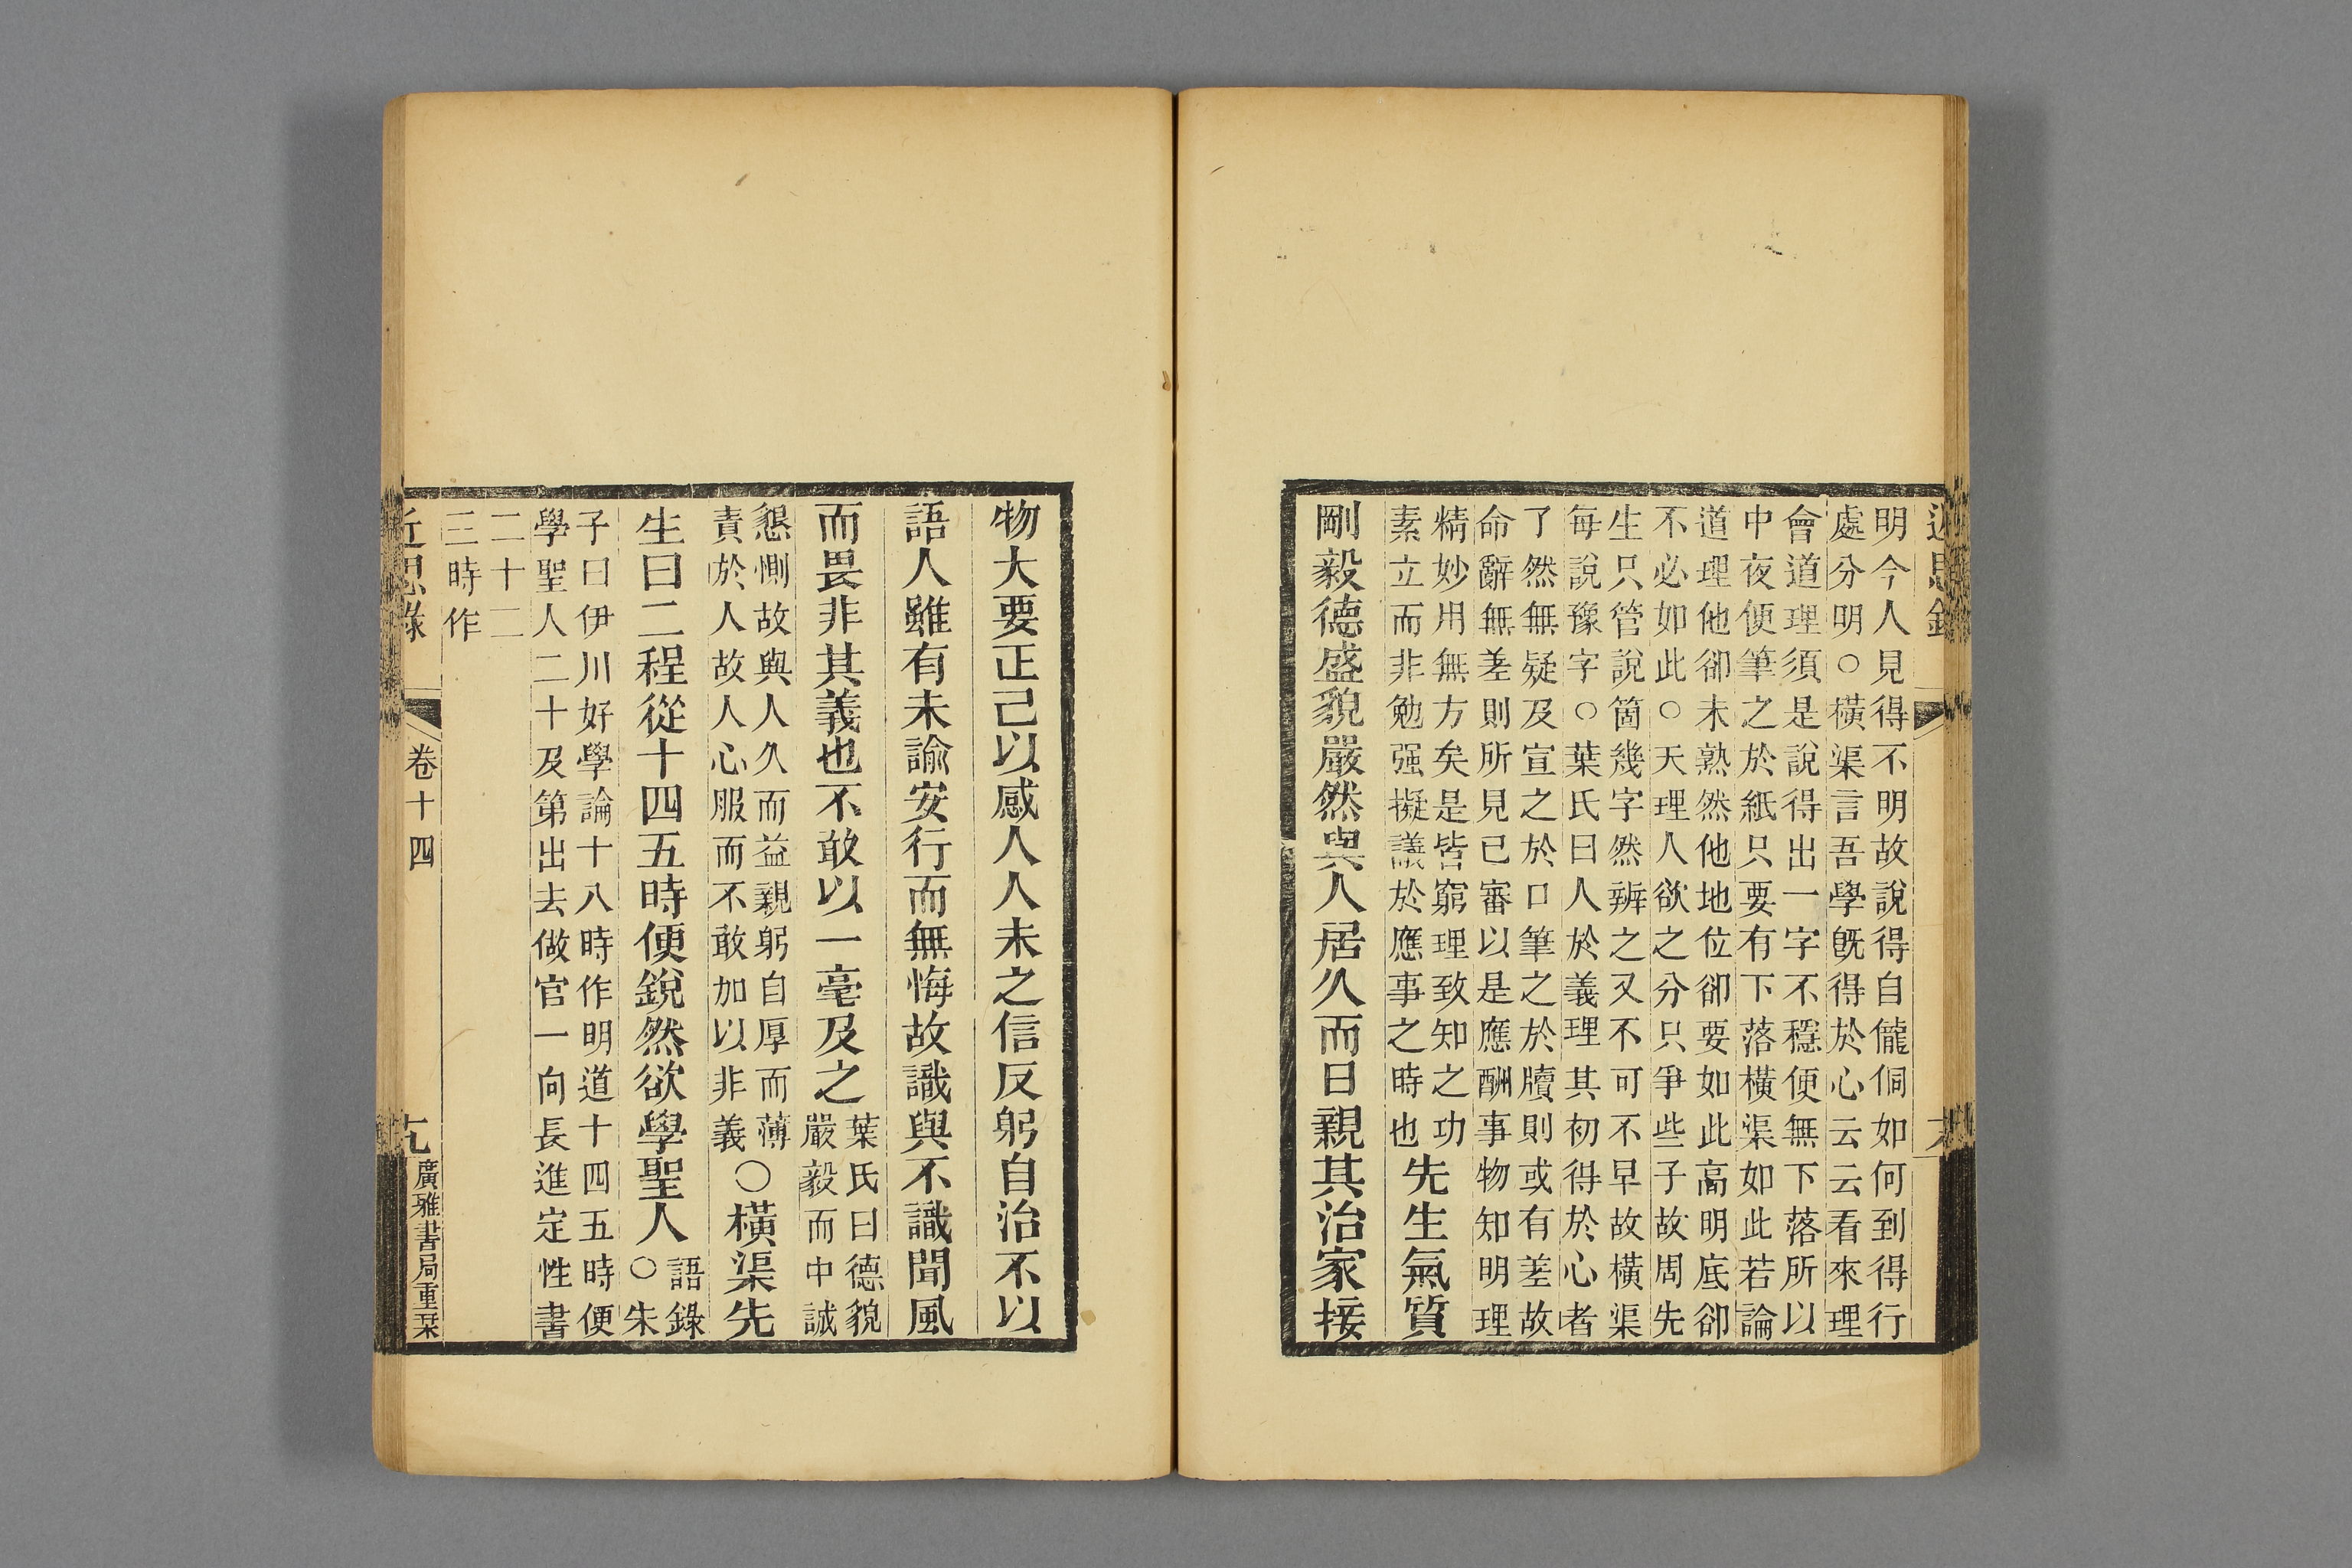 明今人見得不明故說得自儱侗如何到得行
處分明○橫渠言吾學旣得於心云云看來理
會道理須是說得出一字不穩便無下落所以
中夜便筆之於紙只要有下落橫渠如此若論
道理他卻未熟然他地位卻要如此高明底卻
不必如此○天理人欲之分只爭些子故周先
生只管說箇幾字然辨之又不可不早故橫渠
每說豫字○葉氏曰人於義理其初得於心者
了然無疑及宣之於口筆之於牘則或有差故
命辭無差則所見已審以是應酬事物知明理
精妙用無方矣是皆窮理致知之功
素立而非勉强擬議於應事之時也
先生氣質
剛毅德盛貌嚴然與人居久而日親其治家接
物大要正己以感人人未之信反躬自治不以
語人雖有未諭安行而無悔故識與不識聞風
而畏非其義也不敢以一毫及之
葉氏曰德貌
嚴毅而中誠
懇惻故與人久而益親躬自厚而薄
責於人故人心服而不敢加以非義
○橫渠先
生曰二程從十四五時便銳然欲學聖人
語錄
○朱
子曰伊川好學論十八時作明道十四五時便
學聖人二十及第出去做官一向長進定性書
二十二
三時作
近思錄
卷十四
十九
廣雅書局重栞